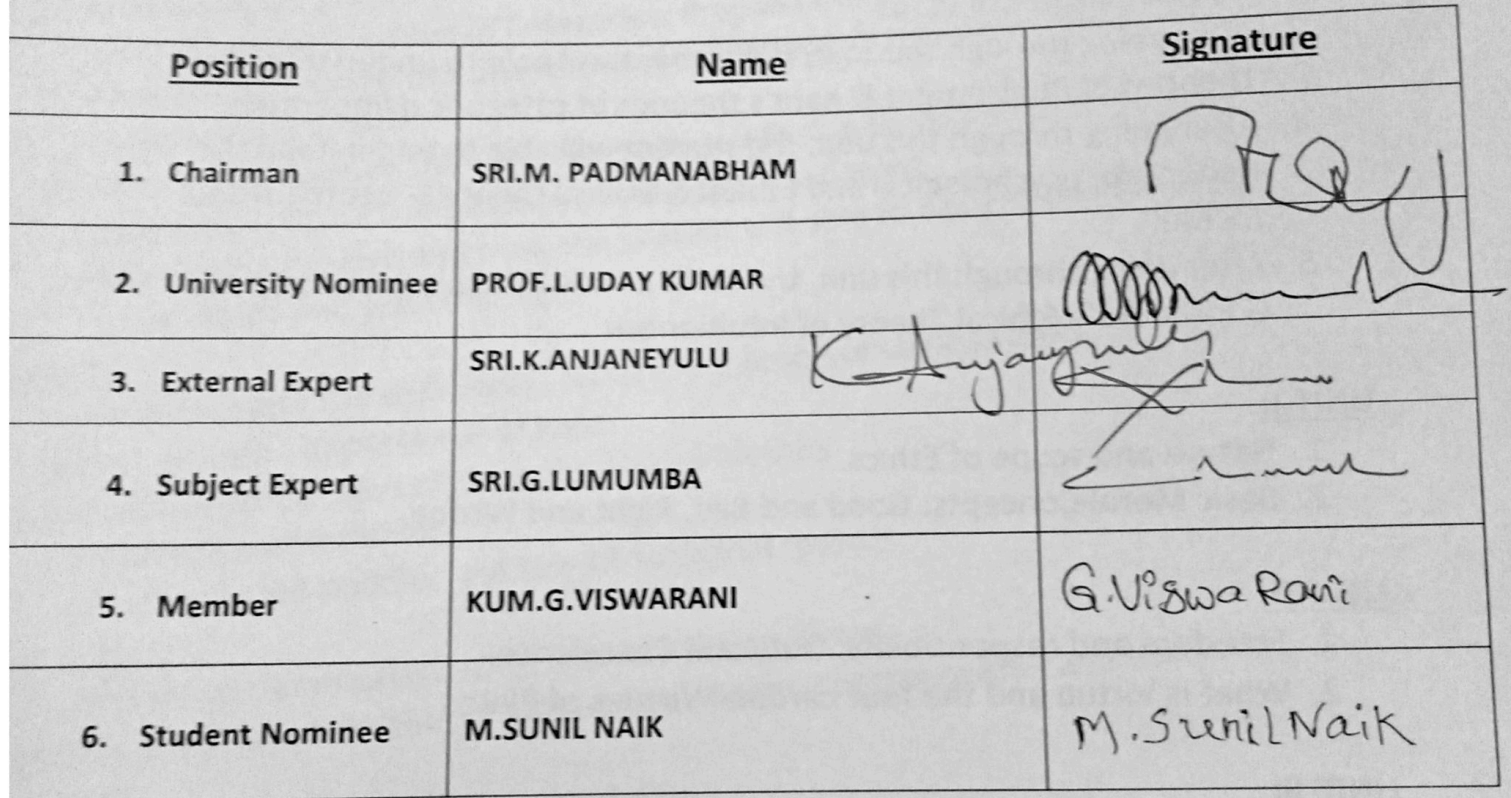 Position Name Signature
1. Chairman SRI.M. PADMANABHAM
2. University Nominee PROF.L.UDAY KUMAR
3. External Expert SRI.K.ANJANEYULU K Anjaneyulu
4. Subject Expert SRI.G.LUMUMBA
5. Member KUM.G.VISWARANI G.Viswa Rani
6. Student Nominee M.SUNIL NAIK M.Sunil Naik